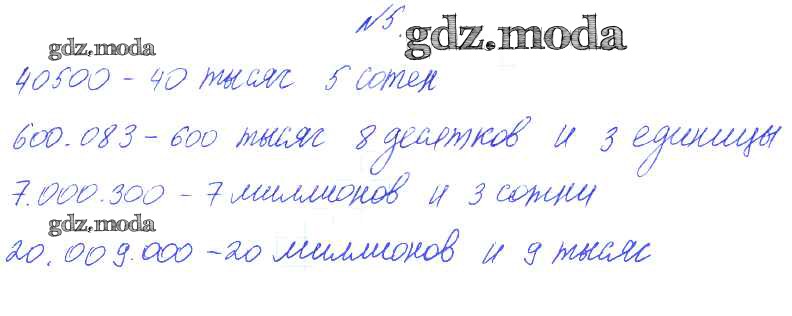 №5.
gdz.moda
gdz.moda
40500 - 40 тысяч 5 сотен
600.083 - 600 тысяч 8 десятков и 3 единицы
7.000.300 - 7 миллионов и 3 сотни
gdz.moda
20.009.000 - 20 миллионов и 9 тысяч